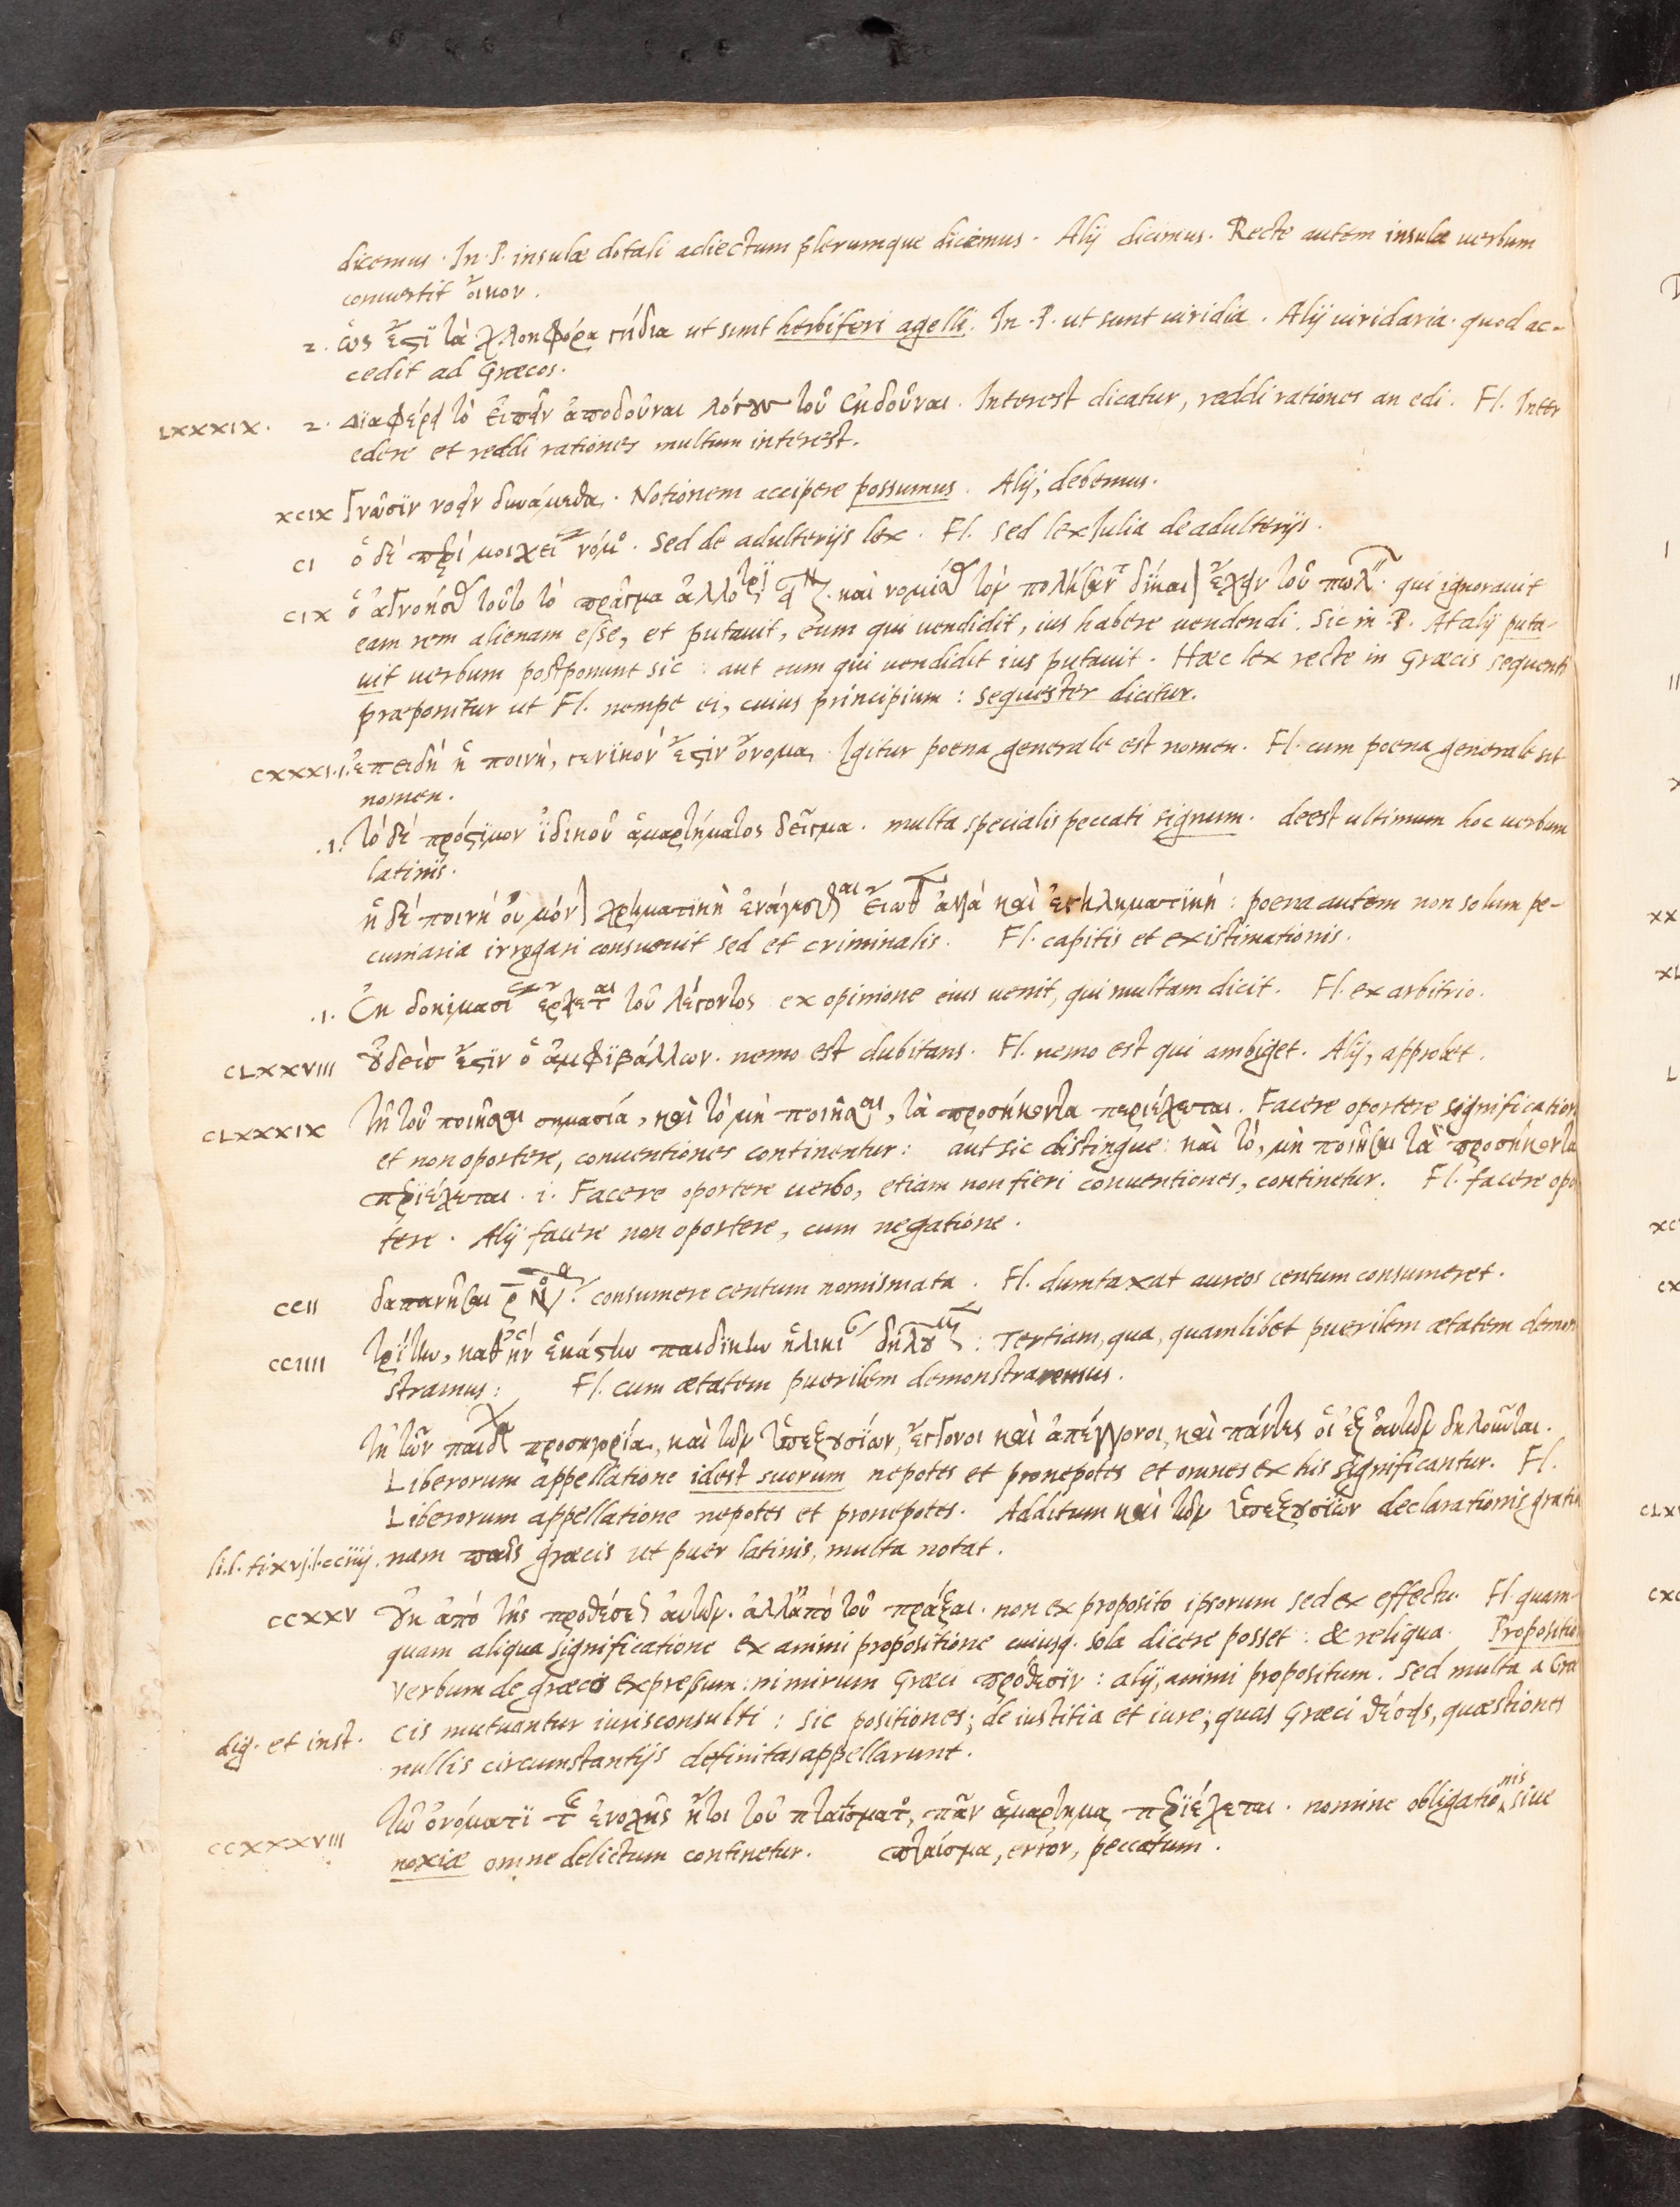 dicemus. In .P. insulæ dotali adiectum plerumque dicemus. Alij dicimus. Recte autem insulæ uerbum
conuertit οἶκον.
2. ὥς ἐστὶ τὰ χλοηφόρα γήδια ut sunt herbiferi agelli. In .P. ut sunt uiridia. Alij uiridaria. quod ac-
cedit ad Græcos.
LXXXIX. 2. Διαφέρει τὸ εἰπεῖν ἀποδοῦναι λόγον τοῦ ἐκδοῦναι. Interest dicatur, reddi rationes an edi. Fl. Inter
edere et reddi rationes multum interest.
XCIX Γνῶσιν νοεῖν δυνάμεθα. Notionem accipere possumus. Alij, debemus.
CI ὁ δὲ περὶ μοιχείας νόμος. Sed de adulterijs lex. Fl. sed lex Julia de adulterijs.
CIX ὁ ἀγνοήσας τοῦτο τὸ πρᾶγμα ἀλλότριον εἶναι καὶ νομίσας τὸν πωλήσαντα δίκαιον ἔχειν τοῦ πωλεῖν. qui ignorauit
eam rem alienam esse, et putauit, eum qui uendidit, ius habere uendendi. Sic in .P. At alij puta-
uit uerbum postponunt sic: aut eum qui uendidit ius putauit. Hæc lex recte in Græcis sequenti
præponitur ut Fl. nempe ei, cuius principium: sequester dicitur.
CXXXI.1. ἐπειδὴ ἡ ποινή, γενικόν ἐστιν ὄνομα. Igitur poena generale est nomen. Fl. cum poena generale sit
nomen.
.1. τὸ δὲ πρόστιμον ἰδικοῦ ἁμαρτήματος δεῖγμα. multa specialis peccati signum. deest ultimum hoc uerbum
latinis.
ἡ δὲ ποινὴ οὐ μόνον χρηματικὴ ἐνάγεσθαι εἴωθεν ἀλλὰ καὶ ἐγκληματική: poena autem non solum pe-
cuniaria irrogari consueuit sed et criminalis. Fl. capitis et existimationis.
.1. ἐκ δοκιμασίας ἔρχεται τοῦ λέγοντος ex opinione eius uenit, qui multam dicit. Fl. ex arbitrio.
CLXXVIII οὐδείς ἐστιν ὁ ἀμφιβάλλων. nemo est dubitans. Fl. nemo est qui ambiget. Alij, approbet.
CLXXXIX τῇ τοῦ ποιῆσαι σημασίᾳ, καὶ τὸ μὴ ποιῆσαι, τὰ προσήκοντα περιέχεται. Facere oportere signification
et non oportere, conuentiones continentur: aut sic distingue: καὶ τὸ, μὴ ποιῆσαι τὰ προσήκοντα
περιέχεται. i. Facere oportere uerbo, etiam non fieri conuentiones, continetur. Fl. facere opo
tere. Alij facere non oportere, cum negatione.
CCII δαπανῆσαι ρ νο. consumere centum nomismata. Fl. dumtaxat aureos centum consumeret.
CCIIII τρίτην, καθ' ἣν ἑκάστην παιδικὴν ἡλικίαν δηλοῦμεν: Tertiam, qua, quamlibet puerilem ætatem demon
stramus: Fl. cum ætatem puerilem demonstraremus.
τῇ τῶν παίδων προσηγορίᾳ, καὶ τῶν ὑπεξουσίων, ἔγγονοι καὶ ἀπέγγονοι, καὶ πάντες οἱ ἐξ αὐτῶν δηλοῦνται.
Liberorum appellatione idest suorum nepotes et pronepotes et omnes ex his significantur. Fl.
Liberorum appellatione nepotes et pronepotes. Additum καὶ τῶν ὑπεξουσίων declarationis gratia
li.l. ti.xvj.l.cciiij. nam παῖς græcis ut puer latinis, multa notat.
CCXXV οὐκ ἀπὸ τῆς προθέσεως αὐτῶν. ἀλλ' ἀπὸ τοῦ πρᾶξαι. non ex proposito ipsorum sed ex effectu. Fl. quam-
quam aliqua significatione ex animi propositione cuiusq. sola dicere posset: & reliqua. Propositio
verbum de græco expressum: nimirum Græci πρόθεσιν: alij, animi propositum. Sed multa a Græ
dig. et inst. cis mutuantur iurisconsulti: sic positiones; de iustitia et iure; quas Græci θέσεις, quæstiones
nullis circumstantijs definitas appellarunt.
CCXXXVIII τῷ ὀνόματι τῆς ἐνοχῆς ἤτοι τοῦ πταίσματος, πᾶν ἁμάρτημα περιέχεται. nomine obligationis siue
noxiæ omne delictum continetur. πταῖσμα, error, peccatum.